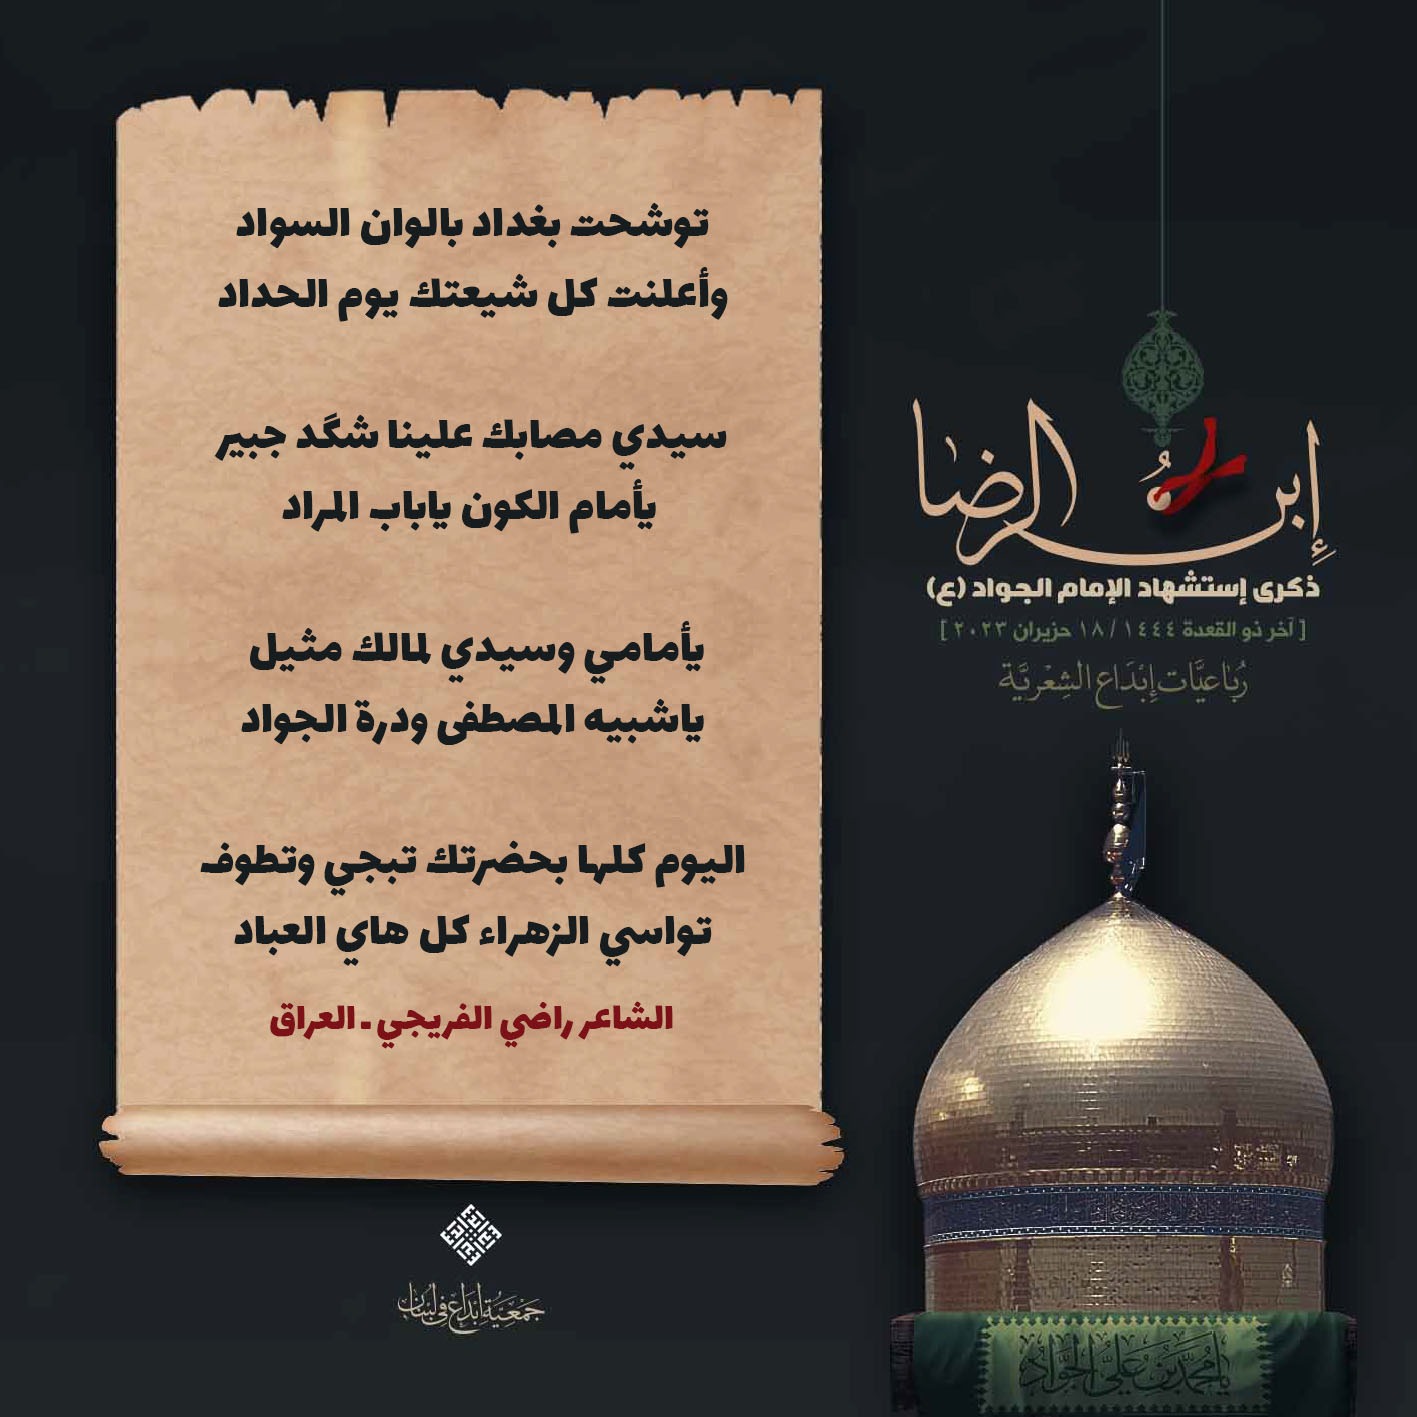 توشحت بغداد بالوان السواد
وأعلنت كل شيعتك يوم الحداد
سيدي مصابك علينا شگد جبير
يأمام الكون ياباب المراد
يأمامي وسيدي لمالك مثيل
ياشبيه المصطفى ودرة الجواد
اليوم كلها بحضرتك تبجي وتطوف
تواسي الزهراء كل هاي العباد
الشاعر راضي الفريجي - العراق
جَمْعِيَّة إبْدَاع في لبنان
إبن الرضا
ذكرى إستشهاد الإمام الجواد (ع)
[ آخر ذو القعدة ١٤٤٤ / ١٨ حزيران ٢٠٢٣ ]
رُبَاعيَّات إبْدَاع الشِعْريَّة
يا محمد بن علي الجواد